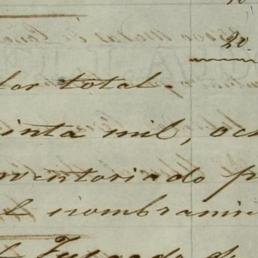 20
lor total.
inta mil, och
nventoriado p
l nombramie
Juzgado de